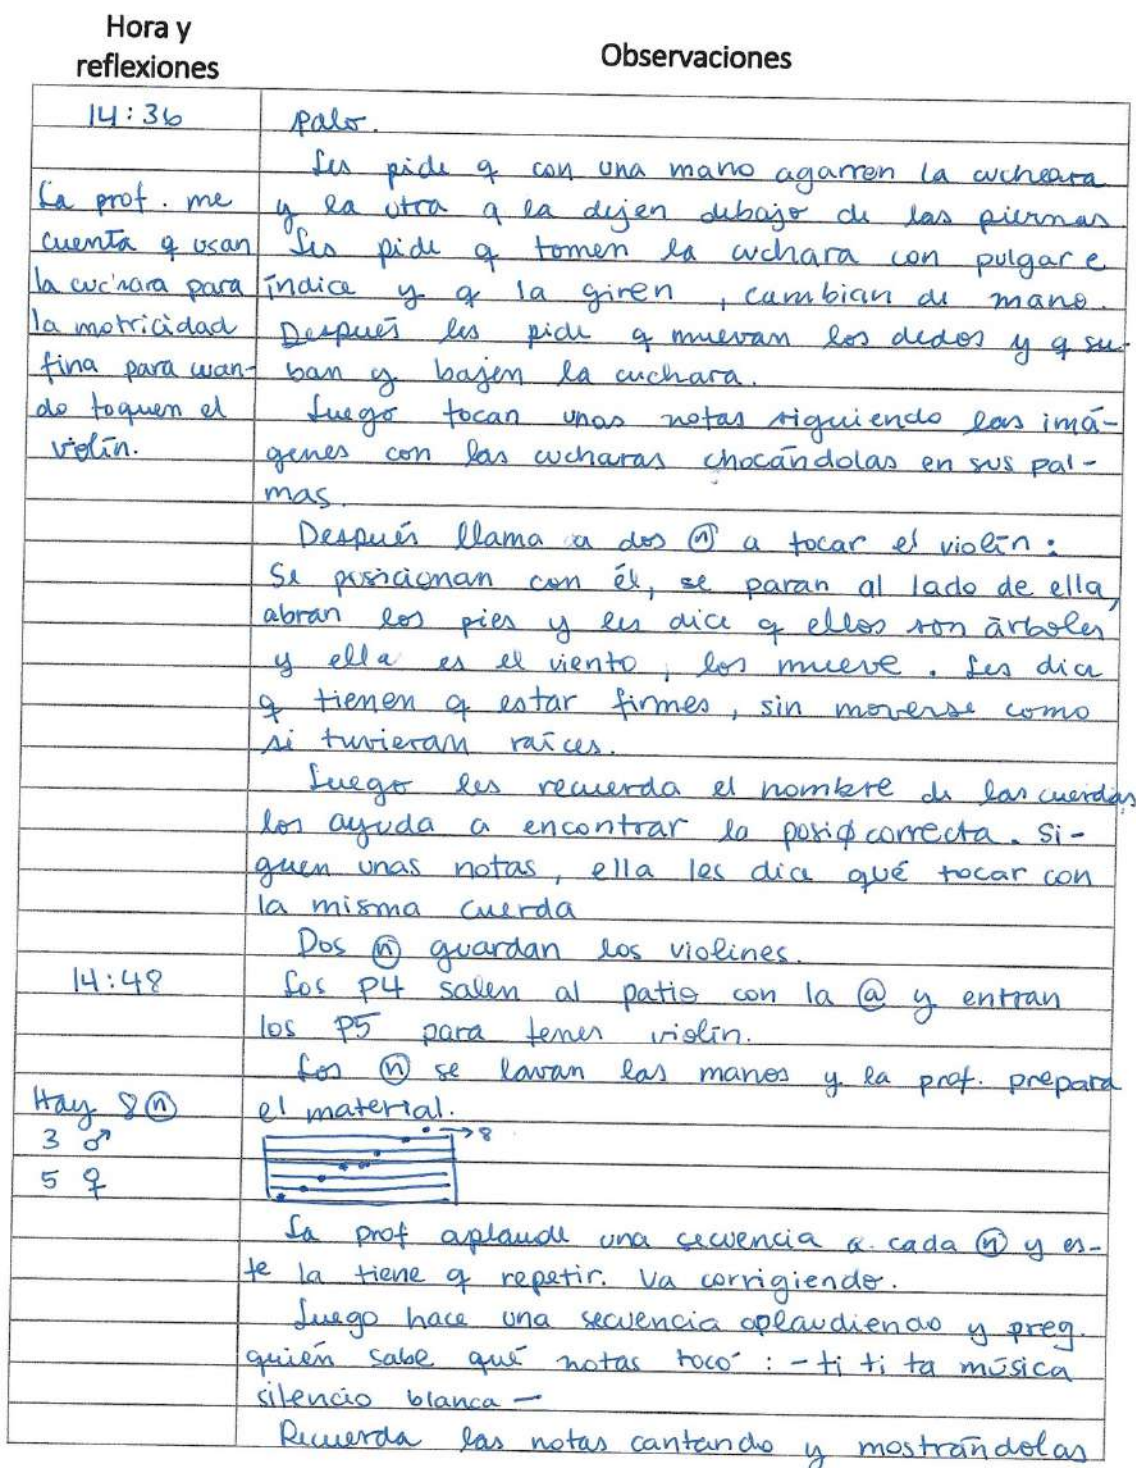 Hora y
reflexiones
Observaciones
14:36
palo.
Les pide q con una mano agarren la cucheara
La prof. me
y la otra q la dejen debajo de las piernas
cuenta q usan
Les pide q tomen la cuchara con pulgar e
la cuchara para
índice y q la giren, cambian de mano.
la motricidad
Después les pide q muevan los dedos y q su-
fina para cuan-
ban y bajen la cuchara.
do toquen el
Luego tocan unas notas siguiendo las imá-
violín.
genes con las cucharas chocándolas en sus pal-
mas.
Después llama a dos ⓝ a tocar el violín:
Se posicionan con él, se paran al lado de ella,
abran los pies y les dice q ellos son árboles
y ella es el viento, los mueve. Les dice
q tienen q estar firmes, sin moverse como
si tuvieran raíces.
Luego les recuerda el nombre de las cuerdas,
los ayuda a encontrar la posiφ correcta. Si-
guen unas notas, ella les dice qué tocar con
la misma cuerda
Dos ⓝ guardan los violines.
14:48
Los P4 salen al patio con la @ y entran
los P5 para tener violín.
Los ⓝ se lavan las manos y la prof. prepara
Hay 8 ⓝ
el material.
3 ♂
→8
5 ♀
La prof aplaude una secuencia a cada ⓝ y es-
te la tiene q repetir. Va corrigiendo.
Luego hace una secuencia aplaudiendo y preg.
quién sabe qué notas tocó: - ti ti ta música
silencio blanca —
Recuerda las notas cantando y mostrándolas